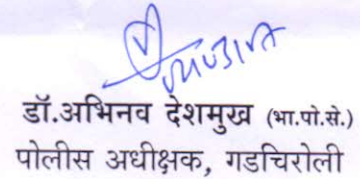 डॉ.अभिनव देशमुख (भा.पो.से.)
पोलीस अधीक्षक, गडचिरोली